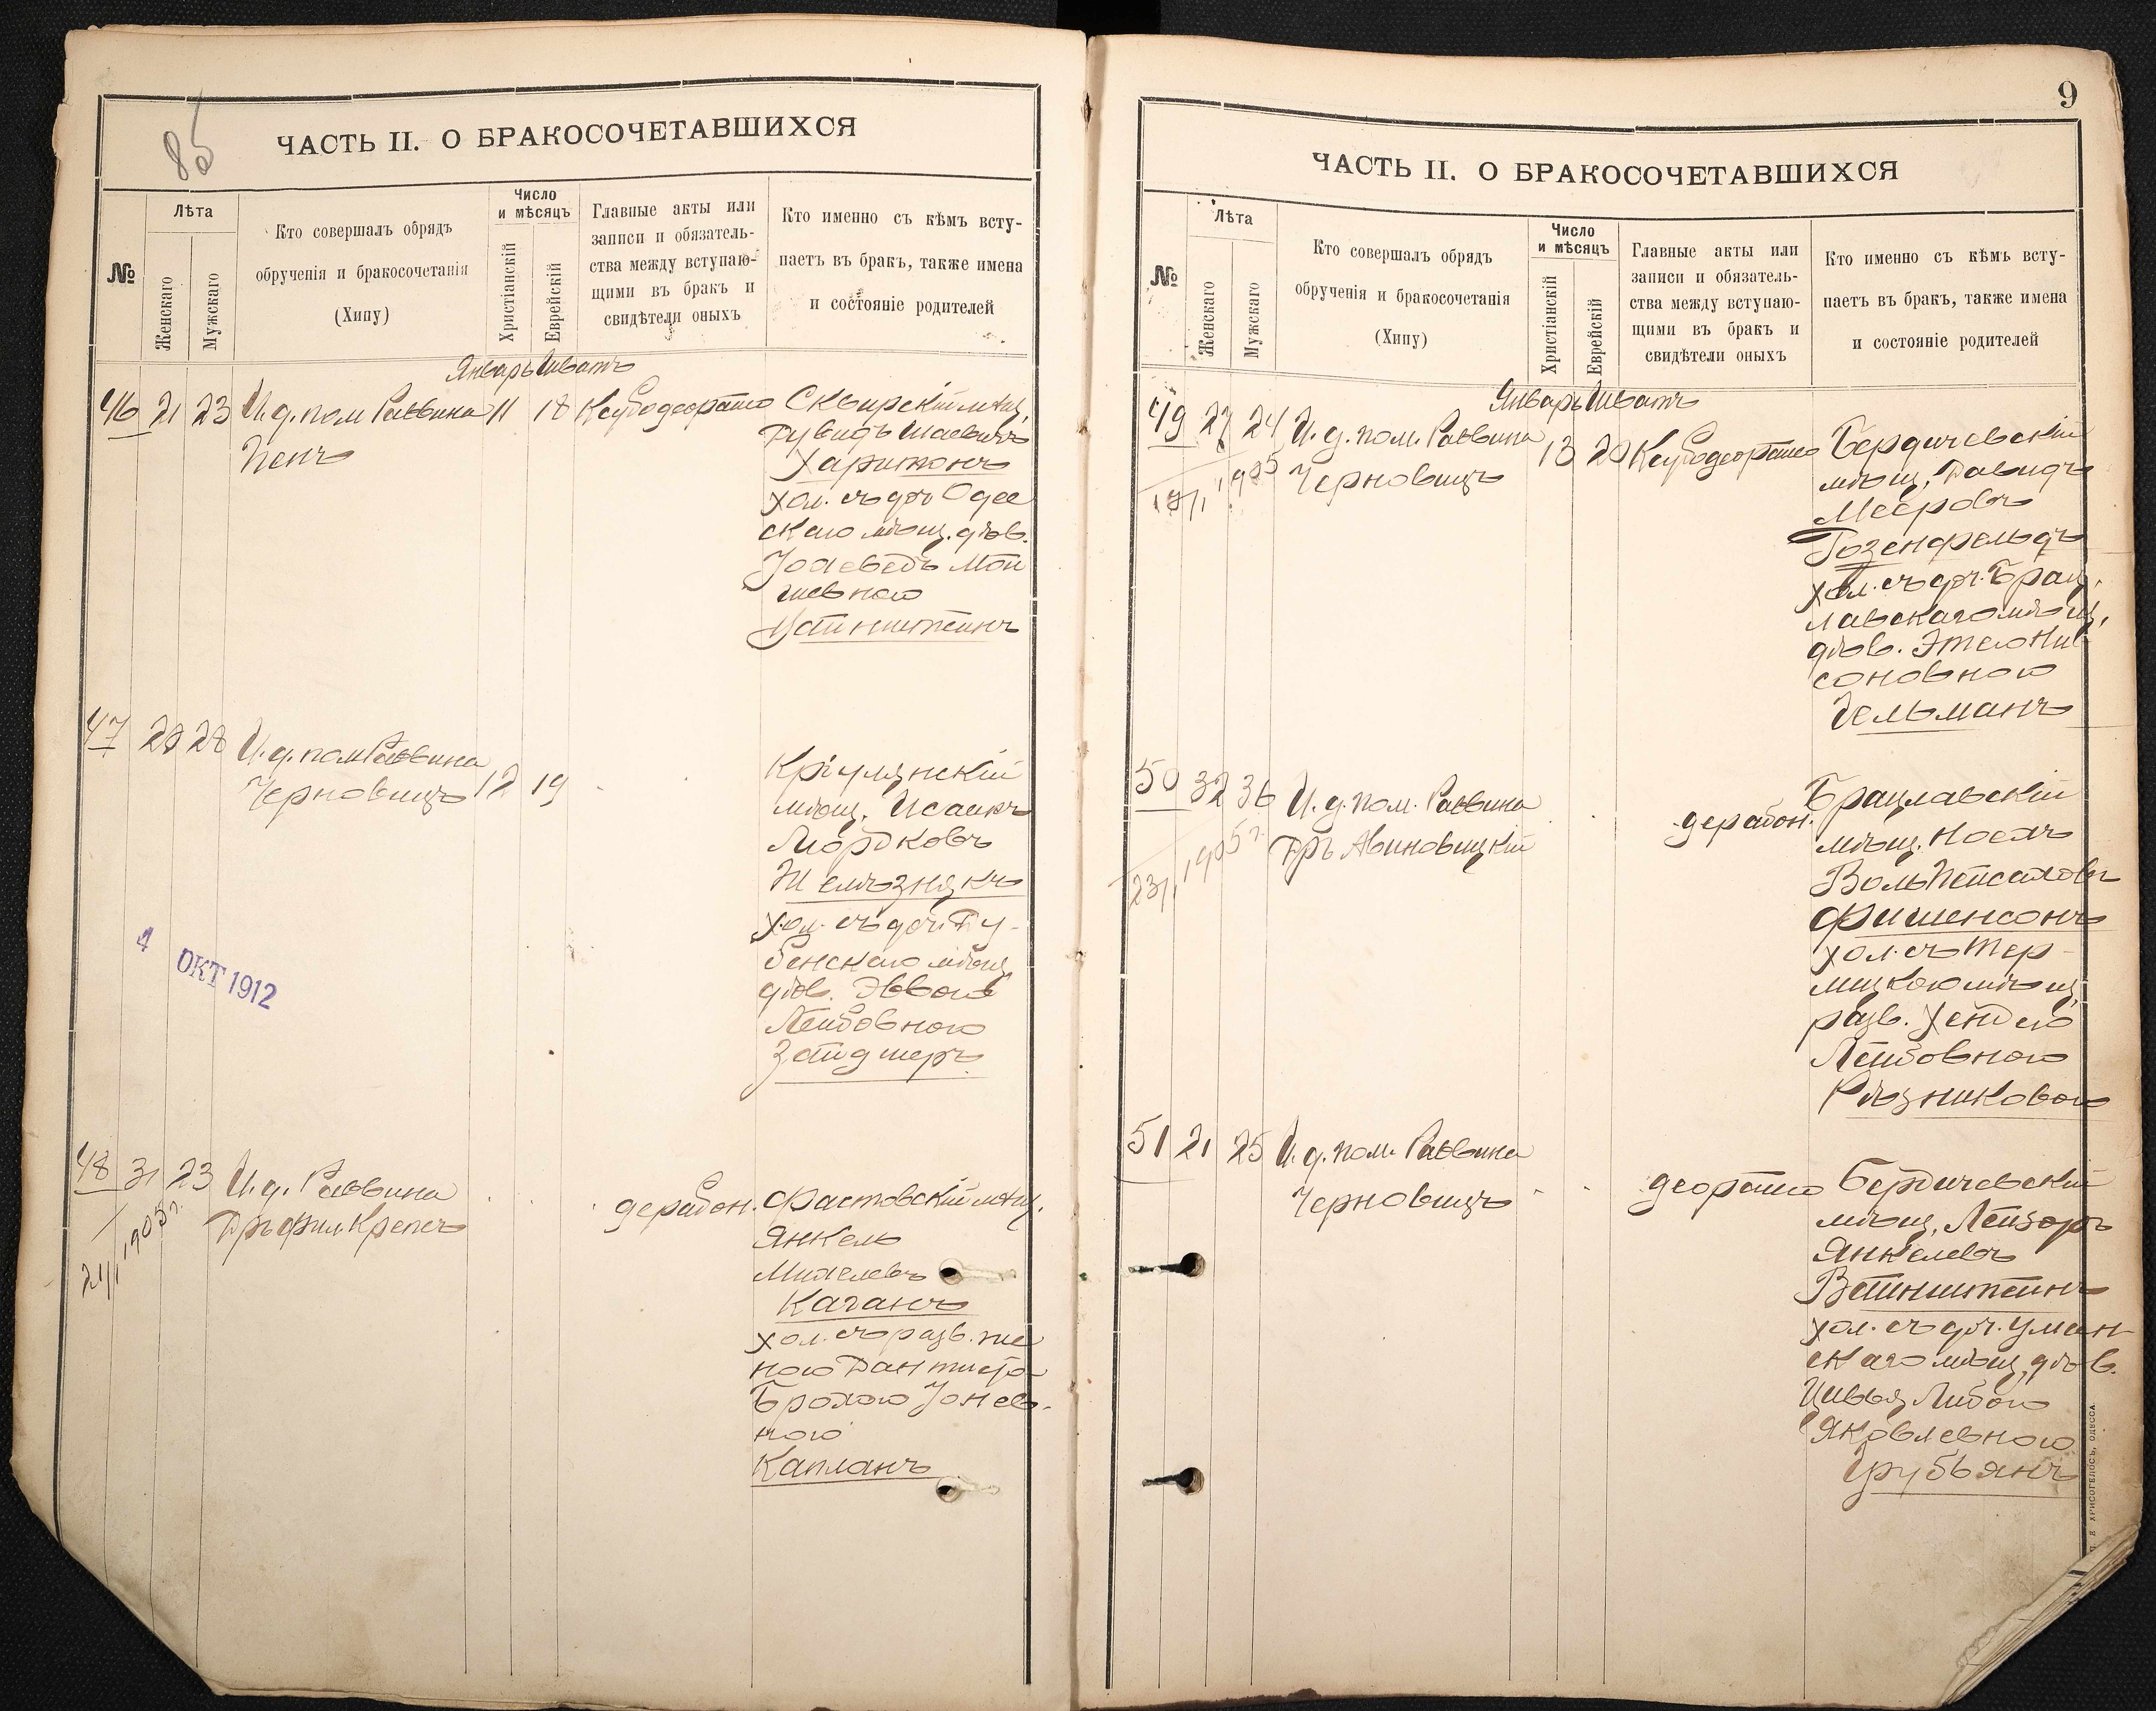 85
ЧАСТЬ II. О БРАКОСОЧЕТАВШИХСЯ
№
Лѣта
Женскаго
Мужскаго
Кто совершалъ обрядъ
обрученія и бракосочетанія
(Хипу)
Число
и мѣсяцъ
Христіанскій
Еврейскій
Главные акты или
записи и обязатель-
ства между вступаю-
щими въ бракъ и
свидѣтели оныхъ
Кто именно съ кѣмъ всту-
паетъ въ бракъ, также имена
и состояніе родителей
Январь Шватъ
46 21 23 И. д. пом Раввина 11 18 Сквирскій мѣщ.
Пенъ
Дувидъ Шаевичъ
Харитонъ
хол. съ доч Одес
скаго мѣщ. дѣв.
Мои
шевною
47 28 И. д. пом Раввина
Черновицъ 12 19
Кріулянскій
мѣщ. Исаакъ
Мордковъ
Желѣзнякъ
хол. съ доч. Ду-
бенскаго мѣщ
дѣв.
Лейбовною
Зайдшеръ
4 ОКТ 1912
48 31 23 И. д. Раввина
21/1 1905 г.
Фастовскій мѣщ.
Янкель
Михелевъ
Каганъ
хол. съ разв. же
ною Дантиста
Брохою Іонев-
ною
Капланъ
9
ЧАСТЬ II. О БРАКОСОЧЕТАВШИХСЯ
№
Лѣта
Женскаго
Мужскаго
Кто совершалъ обрядъ
обрученія и бракосочетанія
(Хипу)
Число
и мѣсяцъ
Христіанскій
Еврейскій
Главные акты или
записи и обязатель-
ства между вступаю-
щими въ бракъ и
свидѣтели оныхъ
Кто именно съ кѣмъ всту-
паетъ въ бракъ, также имена
и состояніе родителей
Январь Шватъ
49 24 И. д. пом. Раввина
Черновицъ 13 20
1905
Бердичевскій
мѣщ. Давидъ
Мееровъ
Розенфельдъ
хол. съ доч. Брац-
лавскаго мѣщ.
дѣв. Этею Ни
соновною
Гельманъ
50 32 36 И. д. пом. Раввина
Дръ Авиновицкій
23/1 1905 г.
Брацлавскій
мѣщ. Носехъ
Воль Пейсаховъ
Фишензонъ
хол. съ Тер-
лицкою мѣщ.
разв. Хендею
Лейбовною
Рѣзниковою
51 21 25 И. д. пом. Раввина
Черновицъ
Бердичевскій
мѣщ. Лейзоръ
Янкелевъ
Вайнштейнъ
хол. съ доч. Уман-
скаго мѣщ. дѣв.
Цивья Либою
Яковлевною
Грубьянъ
ХРИСОГЕЛОСЪ, ОДЕССА.